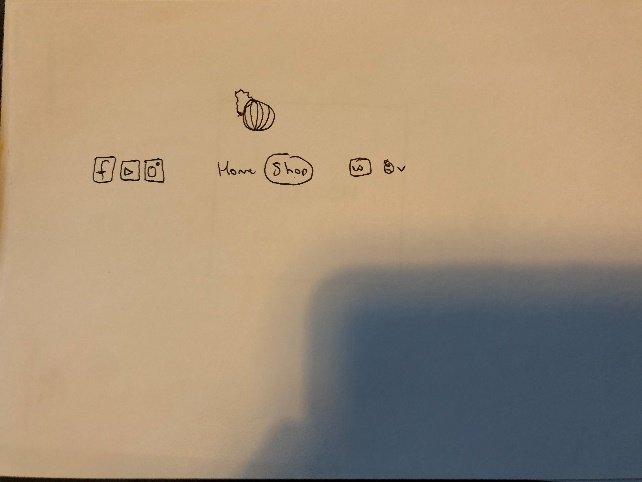 f Home Shop w